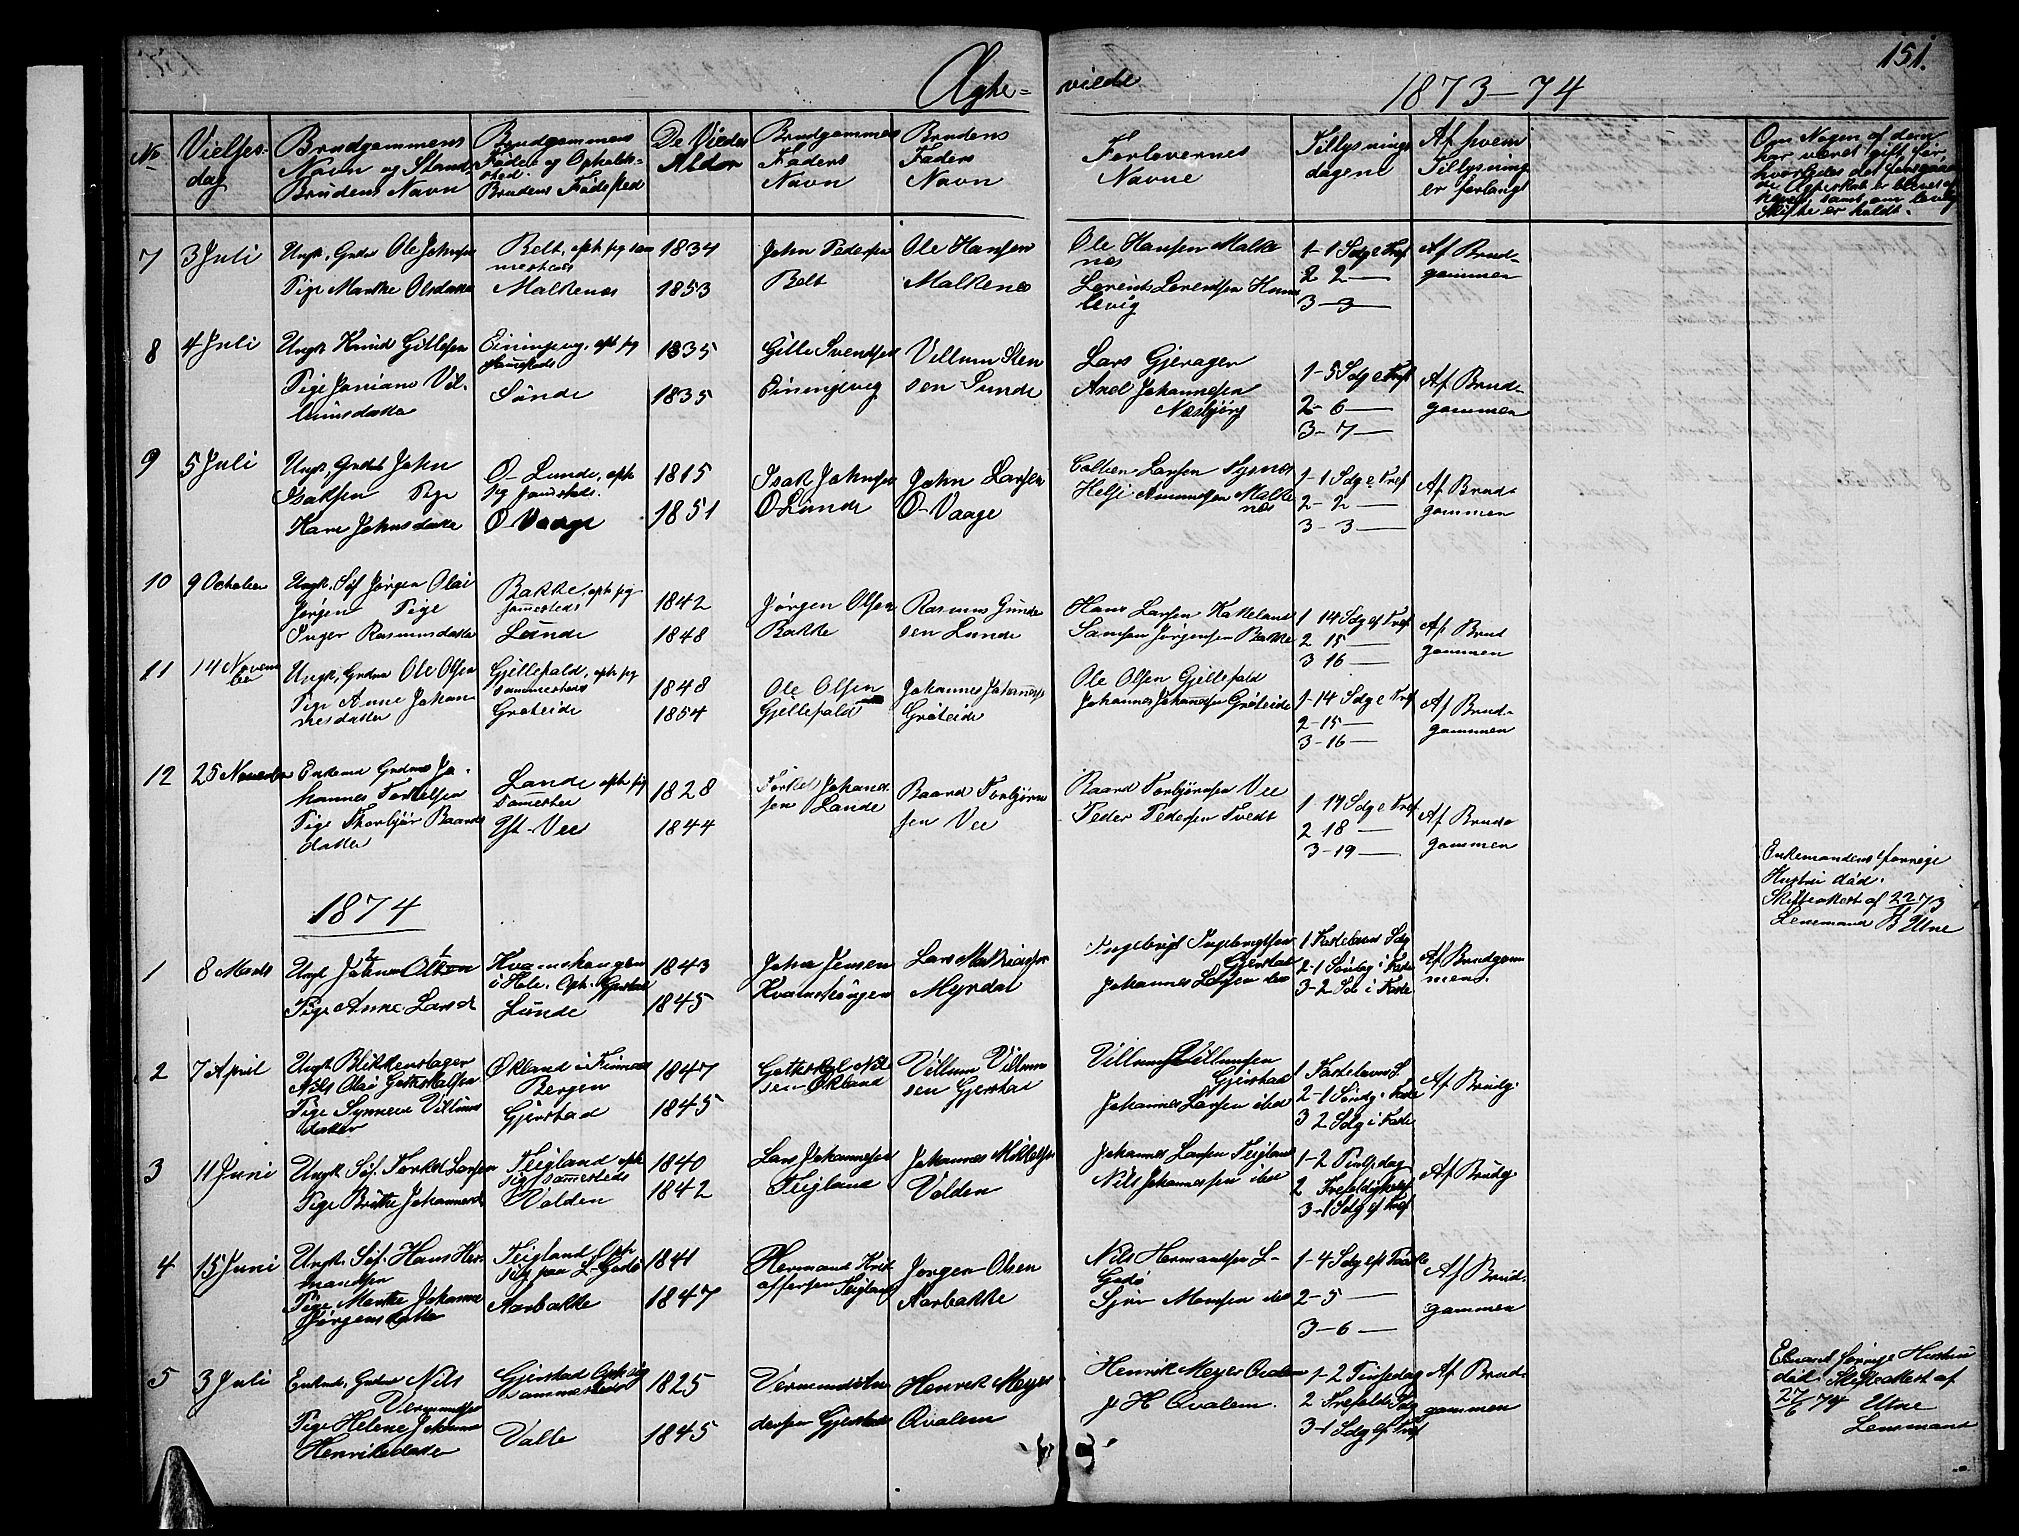 151.
Ægte=
viede
1873–74
No
Vielses-
dag
Brudgommens
Navn og Stand,
Brudens Navn
Brudgommens
Føde og Opholds-
sted.
Brudens Fødested
De Viedes
Alder
Brudgommens
Faders
Navn
Brudens
Faders
Navn
Forlovernes
Navne
Tillysnings
dagene
Af hvem
Tillysning
er forlangt
Om Nogen af dem
har været gift før,
hvorledes det foregaaen
de Ægteskab er blevet op
hævet, samt om lovlig
Skifte er holdt.
7
3 Juli
Ungk. Grdm Ole Johnsen
Pige Marthe Olsdatter
Belt, oph sig sam
mesteds
Malkenes
1834
1853
John Pedersen
Belt
Ole Hansen
Malkenes
Ole Hansen Malke
nes
Lorents Lorentsen
1–1 Sdg e Tref
2 2 —
3–3 —
Af Brud-
gommen
8
4 Juli
Ungk Knud Gillesen
Pige Janiane Vil-
lumsdatter
oph sig
sammesteds
Sunde
1835
1835
Gille Svendsen
Villum Sten
sen Sunde
Lars Gjerager
Axel Johannesen
Nesbjørg
1–5 Sdg e Tref
2–6 —
3–7 —
Af Brud-
gommen
9
5 Juli
Ungk. Grdm John
Isaksen Pige
Johnsdatter
Ø–Lunde, oph
sig samesteds.
Ø–Vaage
1815
1851
Isak Johnsen
Ø Lunde
John Larsen
Ø–Vaage
Larsen Tysnes
Helje Aamundsen Malke
nes
1–1 Sdg e Tref
2–2 —
3–3 —
Af Brud-
gommen
10
9 October
Ungk. Søf Jørgen Olai
Jørgen Pige
Inger Rasmusdatter
Bakke, oph sig
samesteds
Lunde
1842
1848
Jørgen Olsen
Bakke
Rasmus Gunde
sen Lunde
Hans Larsen Katteland
Samson Jørgensen Bakke
1 14 Sdg ef Tref
2 15 —
3 16 —
Af Brud
gommen
11
14 Novem
ber
Ungk, Grdm Ole Olsen
Pige Anne Johan
nesdatter
Gjellefald, oph sig
sammesteds
Grøteide
1848
1854
Ole Olsen
Gjellefald
Johannes Johannes
Grøteide
Ole Olsen Gjellefald
Johannes Johannesen Grøteide
1–14 Sdg e Tref
2–15 —
3–16 —
Af Brud-
gommen
12
25 November
Enkem Grdm Jo-
hannes Torkelsen
Pige Thorbjør Baards
datter
Lande oph sig
samesteds
Yt-Vee
1828
1844
Torkel Johannes
sen Lande
Baard Torbjørn
sen Vee
Baard Torbjørnsen Vee
Peder Pedersen Tvedt
1–17 Sdg e Tref
2 18 —
3–19 —
Af Brud-
gommen
Enkemandens forrige
Hustru død.
Skifteattest af
Lensmand B Utne
1874
1
8 Marts
Ungk Johan
Pige Anne Larsd
Kvamshaugen
i Hole. Oph. Gjerstad
Lunde
1843
1845
John Jensen
Kvamshaugen
Lars Mathiasen
Myrdal
Ingebrigt Ingebrigtsen
Gjerstad
Johannes Larsen ibd
1 Fastelavns Sdg
2–1 Søndag i Faste
3–2 Sdg i Faste
Af Brudgom
men
2
7 April
Ungk Blikkenslager
Nils Olai Gotskalksen
Pige Synneve Villums
datter
Økland i Finnaas
Bergen
Gjerstad
1847
1845
Gotskalk Nil
sen Økland
Villum Villum
sen Gjerstad
Villum Villumsen
Gjerstad
Johannes Larsen ibd
1 Fastelavns S.
2–1 Søndg i Faste
3 2 Sdg i Faste
Af Brudg.
3
11 Juni
Ungk. Søf. Torkel Larsen
Pige Brithe Johannesd
Teigland oph
sig samesteds
Valden
1840
1842
Lars Johannesen
Teigland
Johannes Mikkelsen
Valden
Johannes Larsen Teigland
Nils Johannesen ibd
1–2 Pintsedag
2 Trefoldighedsf
3–1 Sdg ef Tref
Af Brudg
4
15 Juni
Ungk. Søf. Hans Her-
mandsen
Pige Marthe Johanne
Jørgensdatter
Teigland Oph
sig paa L–Godø
Aarbakke
1841
1847
Hermand Krist
offersen Teigland
Jørgen Olsen
Aarbakke
Nils Hermandsen L–
Godø
Sjur Monsen ibd
1–4 Sdg eft Paaske
2–5 —
3–6 —
Af Brud-
gommen
5
3 Juli
Enkm. Grdm Nils
Vermundsen
Pige Helene Johanne
Henriksdatter
Gjerstad Oph sig
sammesteds
Valle
1825
1845
Vermund An
dersen Gjerstad
Henrik Meyer
Qvalem
Henrik Meyer Qvalem
J. H Qvalem.
1–2 Pintsedag
2 Trefold. Sdg
3–1 Sdg ef Tref
Af Brud-
gommen
Ekmand forrige Hustru
død. Skifteattest af
27/6 74 Utne
Lensmand